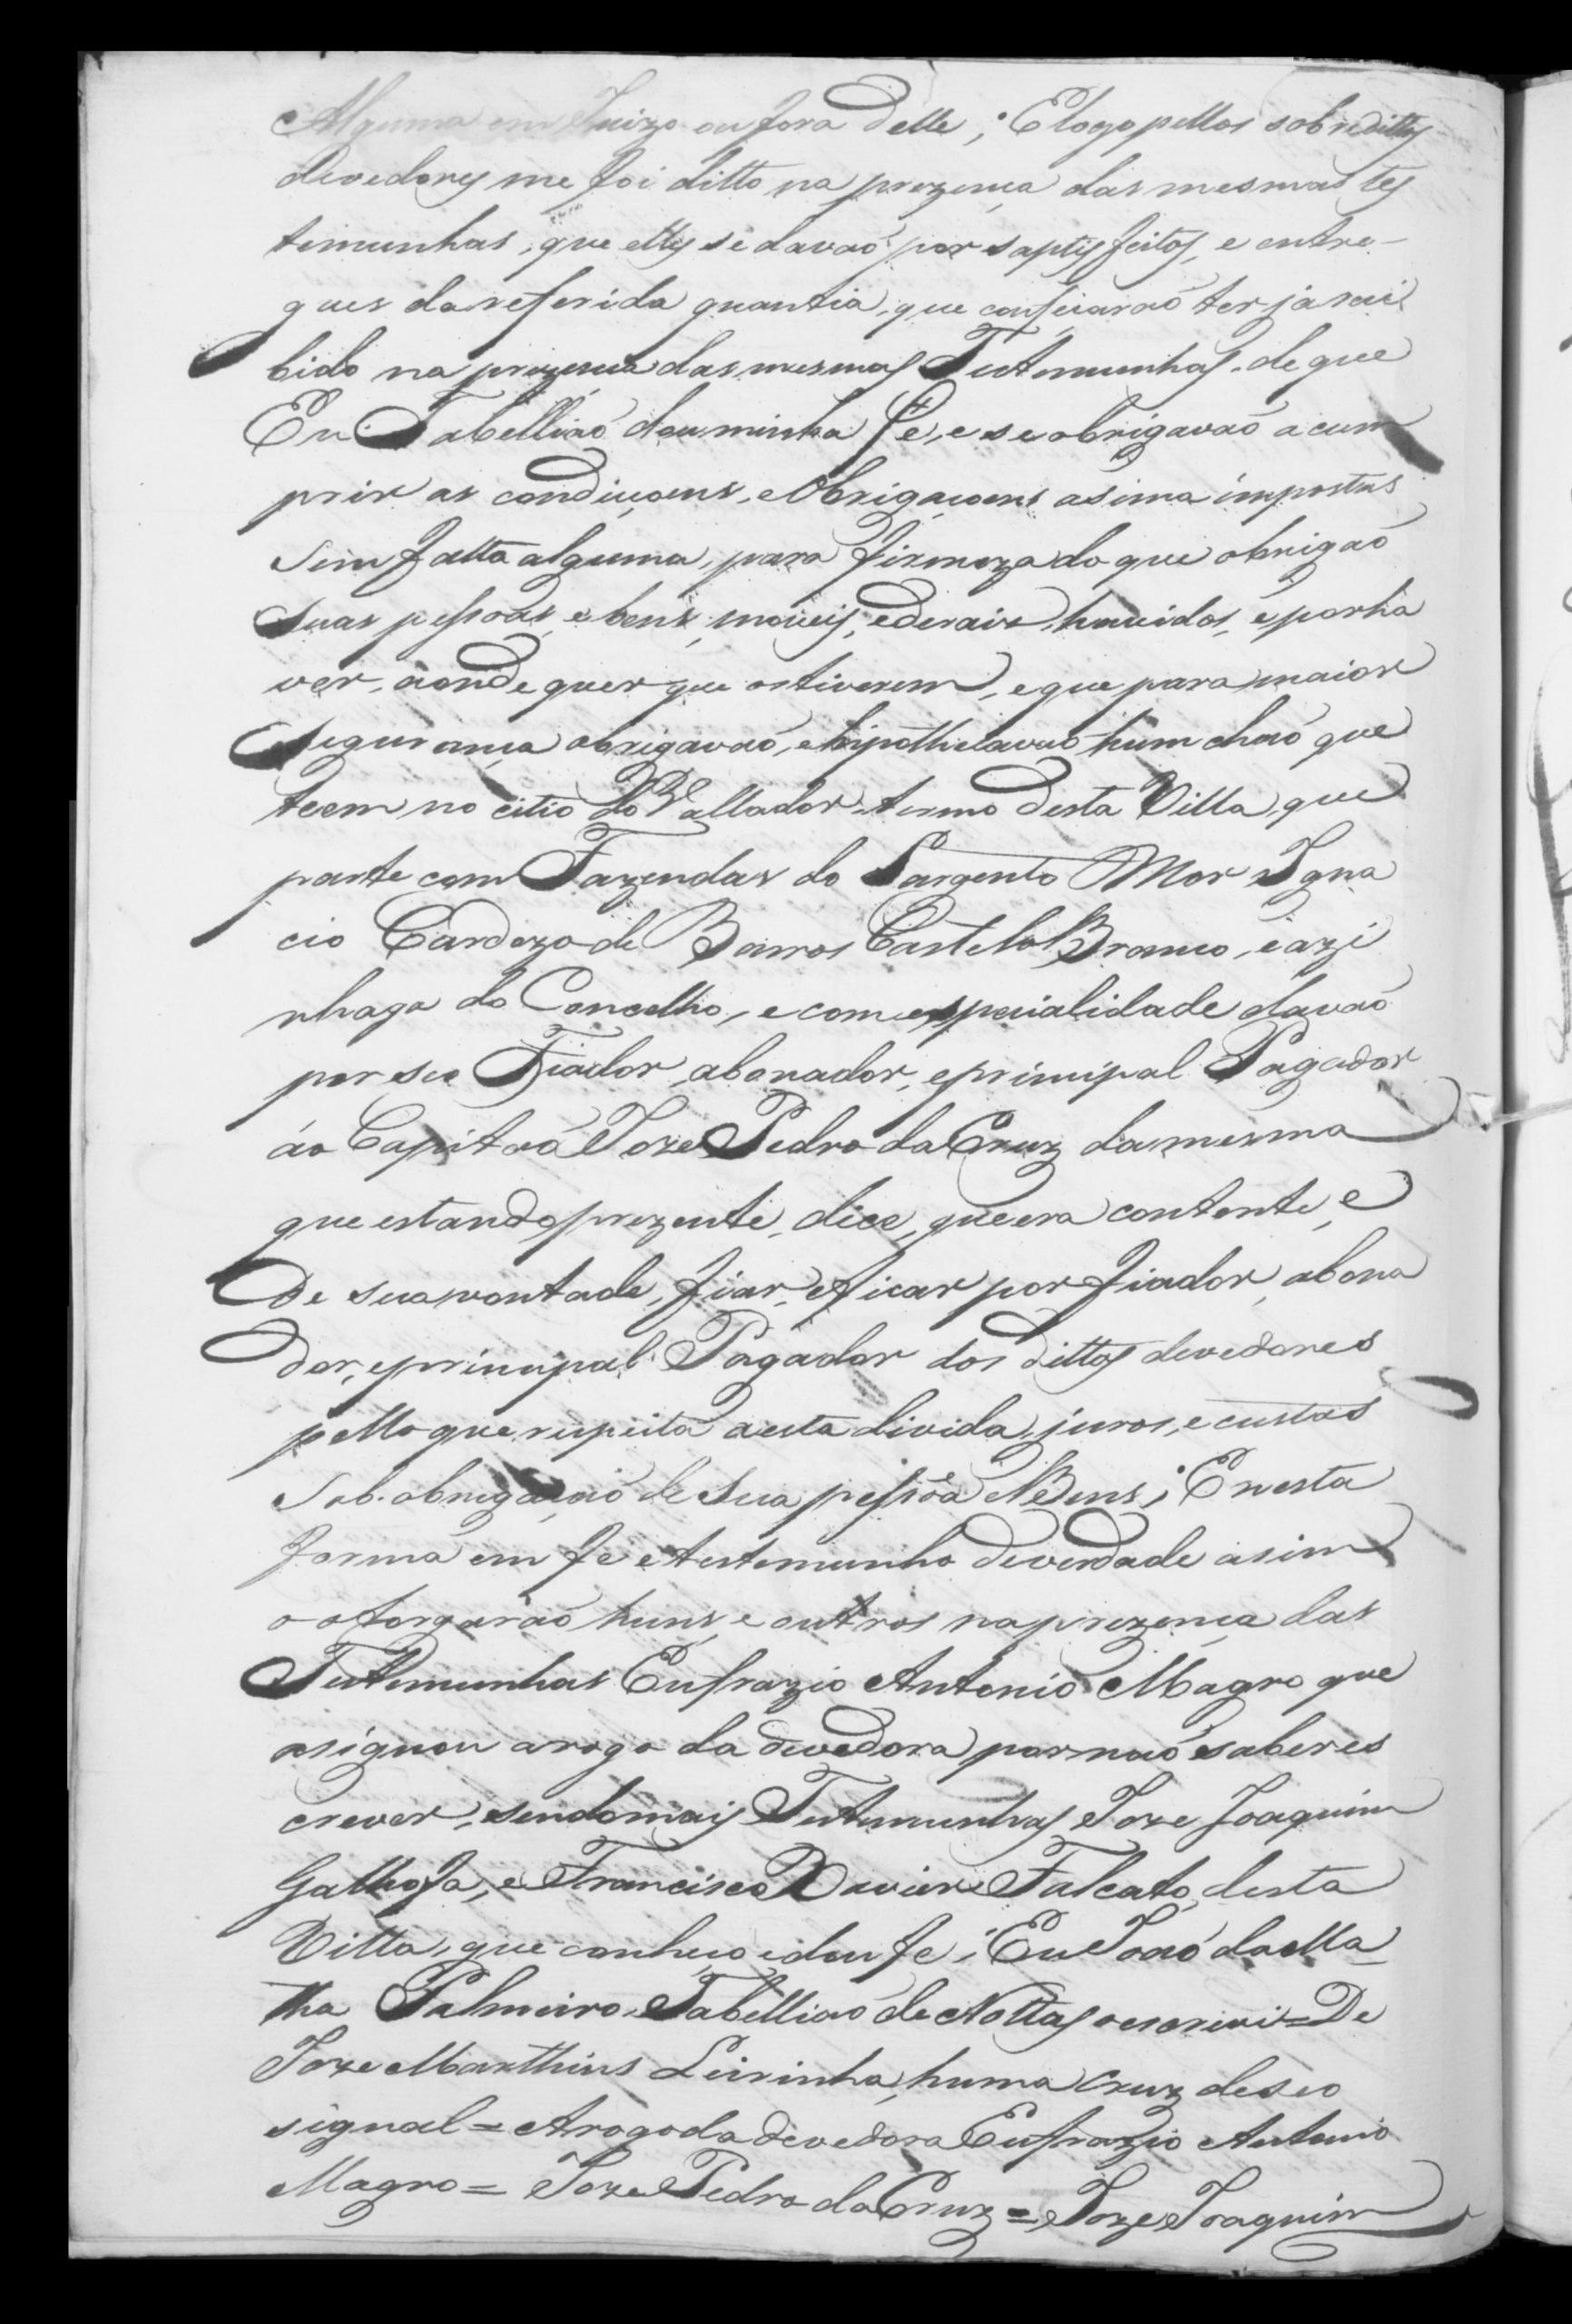 Alguma em Juizo ou fora delle; E logo pellos sobredittos
devedores me foi ditto na prezença das mesmas tes
temunhas, que elles se davaó por saptisfeitos, e entre-
gues da referida quantia, que confeçaraó ter ja reci
bido na prezença das mesmas Testemunhas, de que
Eu Tabelliaó dou minha fé, e se obrigavaó a cum
prir as condiçoens, e Obrigaçoens asima impostas
sem falta alguma, para firmeza do que obrigaó
suas pessoas, e bens, moveis, e deraiz, havidos, e por ha
ver, aonde quer que estiverem, e que para maior
segurança obrigavaó, e hipothecavaó hum chaó que
teem no citio do Vallador termo desta Villa, que
parte com Fazendas do Sargento Mor Igna
cio Cardozo de Barros Castelo Branco, e azi
nhaga do Concelho, e com especialidade davaó
por seo Fiador, abonador, e principal Pagador
áo Capitaó Joze Pedro da Cruz da mesma
que estando prezente, dice, que era contente, e
de sua vontade, fiar, e ficar por fiador, abona
dor, e principal Pagador dos dittos devedores
pello que respeita a esta divida, juros, e custas
sob. obrigaçaó de sua pessôa e Bens; E nesta
forma em fe e testemunho de verdade asim
o otorgaraó huns, e outros na prezença das
Testemunhas Eufrazio Antonio Magro que
asignou arogo da devedora por naó saber es
crever, sendo mais Testemunhas Joze Joaquim
Galhofa, e Francisco Xavier Falcato, desta
Villa, que conheço e dou fe; Eu Joaó da Ma
tta Palmeiro Tabelliaó de Nottas o escrivi = De
Joze Marthins Leirinha, huma Cruz de seo
signal = Arogo da devedora Eufrazio Antonio
Magro = Joze Pedro da Cruz = Joze Joaquim